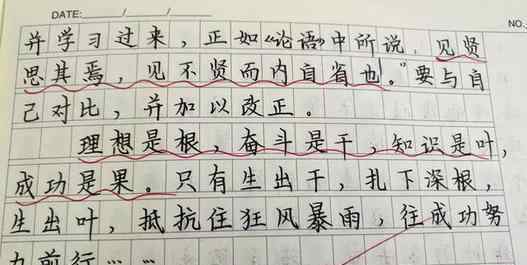 DATE: / /
NO.
并学习过来，正如《论语》中所说，见贤
思其焉，见不贤而内自省也。”要与自
己对比，并加以改正。
理想是根，奋斗是干，知识是叶，
成功是果。只有生出干，扎下深根，
生出叶，抵抗住狂风暴雨，往成功努
力前行……